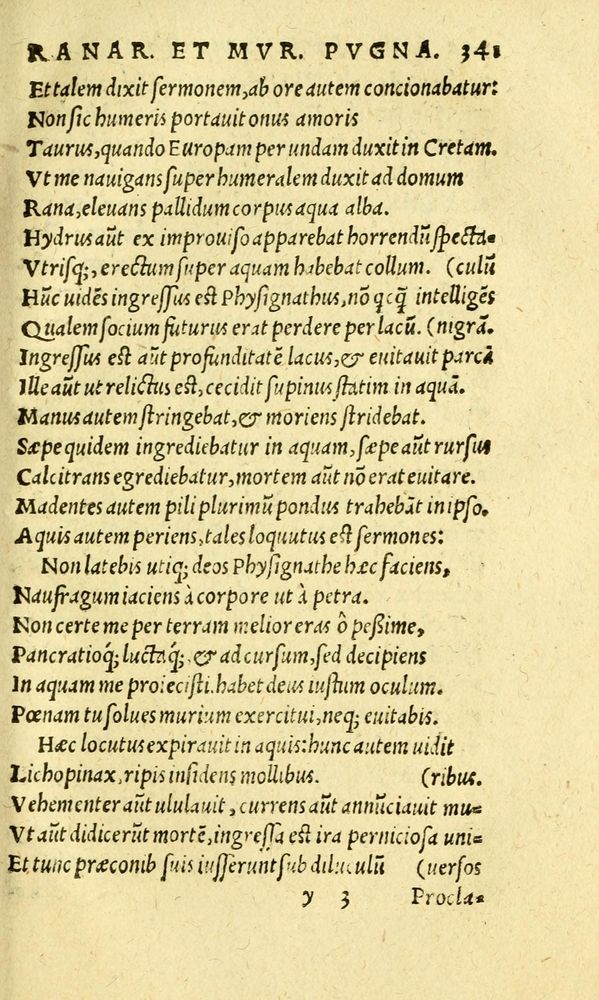 RANAR. ET MVR. PVGNA. 341
Et talem dixit sermonem, ab ore autem concionabatur:
Non sic humeris portauit onus amoris
Taurus, quando Europam per undam duxit in Cretam.
Vt me nauigans super humeralem duxit ad domum
Rana, eleuans pallidum corpus aqua alba.
Hydrus aũt ex improuiso apparebat horrendũ specta-
Vtrisq;, erectum super aquam habebat collum. (culũ
Hũc uidẽs ingressus est Physignathus, nõ qcq̃ intelligẽs
Qualem socium futurus erat perdere per lacũ. (nigrã.
Ingressus est aũt profunditatẽ lacus, & euitauit parcã
Ille aũt ut relictus est, cecidit supinus statim in aquã.
Manus autem stringebat, & moriens stridebat.
Sæpe quidem ingrediebatur in aquam, sæpe aũt rursus
Calcitrans egrediebatur, mortem aũt nõ erat euitare.
Madentes autem pili plurimũ pondus trahebãt in ipso.
Aquis autem periens, tales loquutus est sermones:
Non latebis utiq; deos Physignathe hæc faciens,
Naufragum iaciens à corpore ut à petra.
Non certe me per terram melior eras ô peßime,
Pancratioq́; luctaq́;, & ad cursum, sed decipiens
In aquam me proiecisti. habet deus iustum oculum.
Pœnam tu solues murium exercitui, neq; euitabis.
Hæc locutus expirauit in aquis: hunc autem uidit
Lichopinax, ripis insidens mollibus. (ribus.
Vehementer aũt ululauit, currens aũt annũciauit mu-
Vt aũt didicerũt mortẽ, ingressa est ira perniciosa uni-
Et tunc præconib suis iusserunt sub diluculũ (uersos
y 3 Procla-